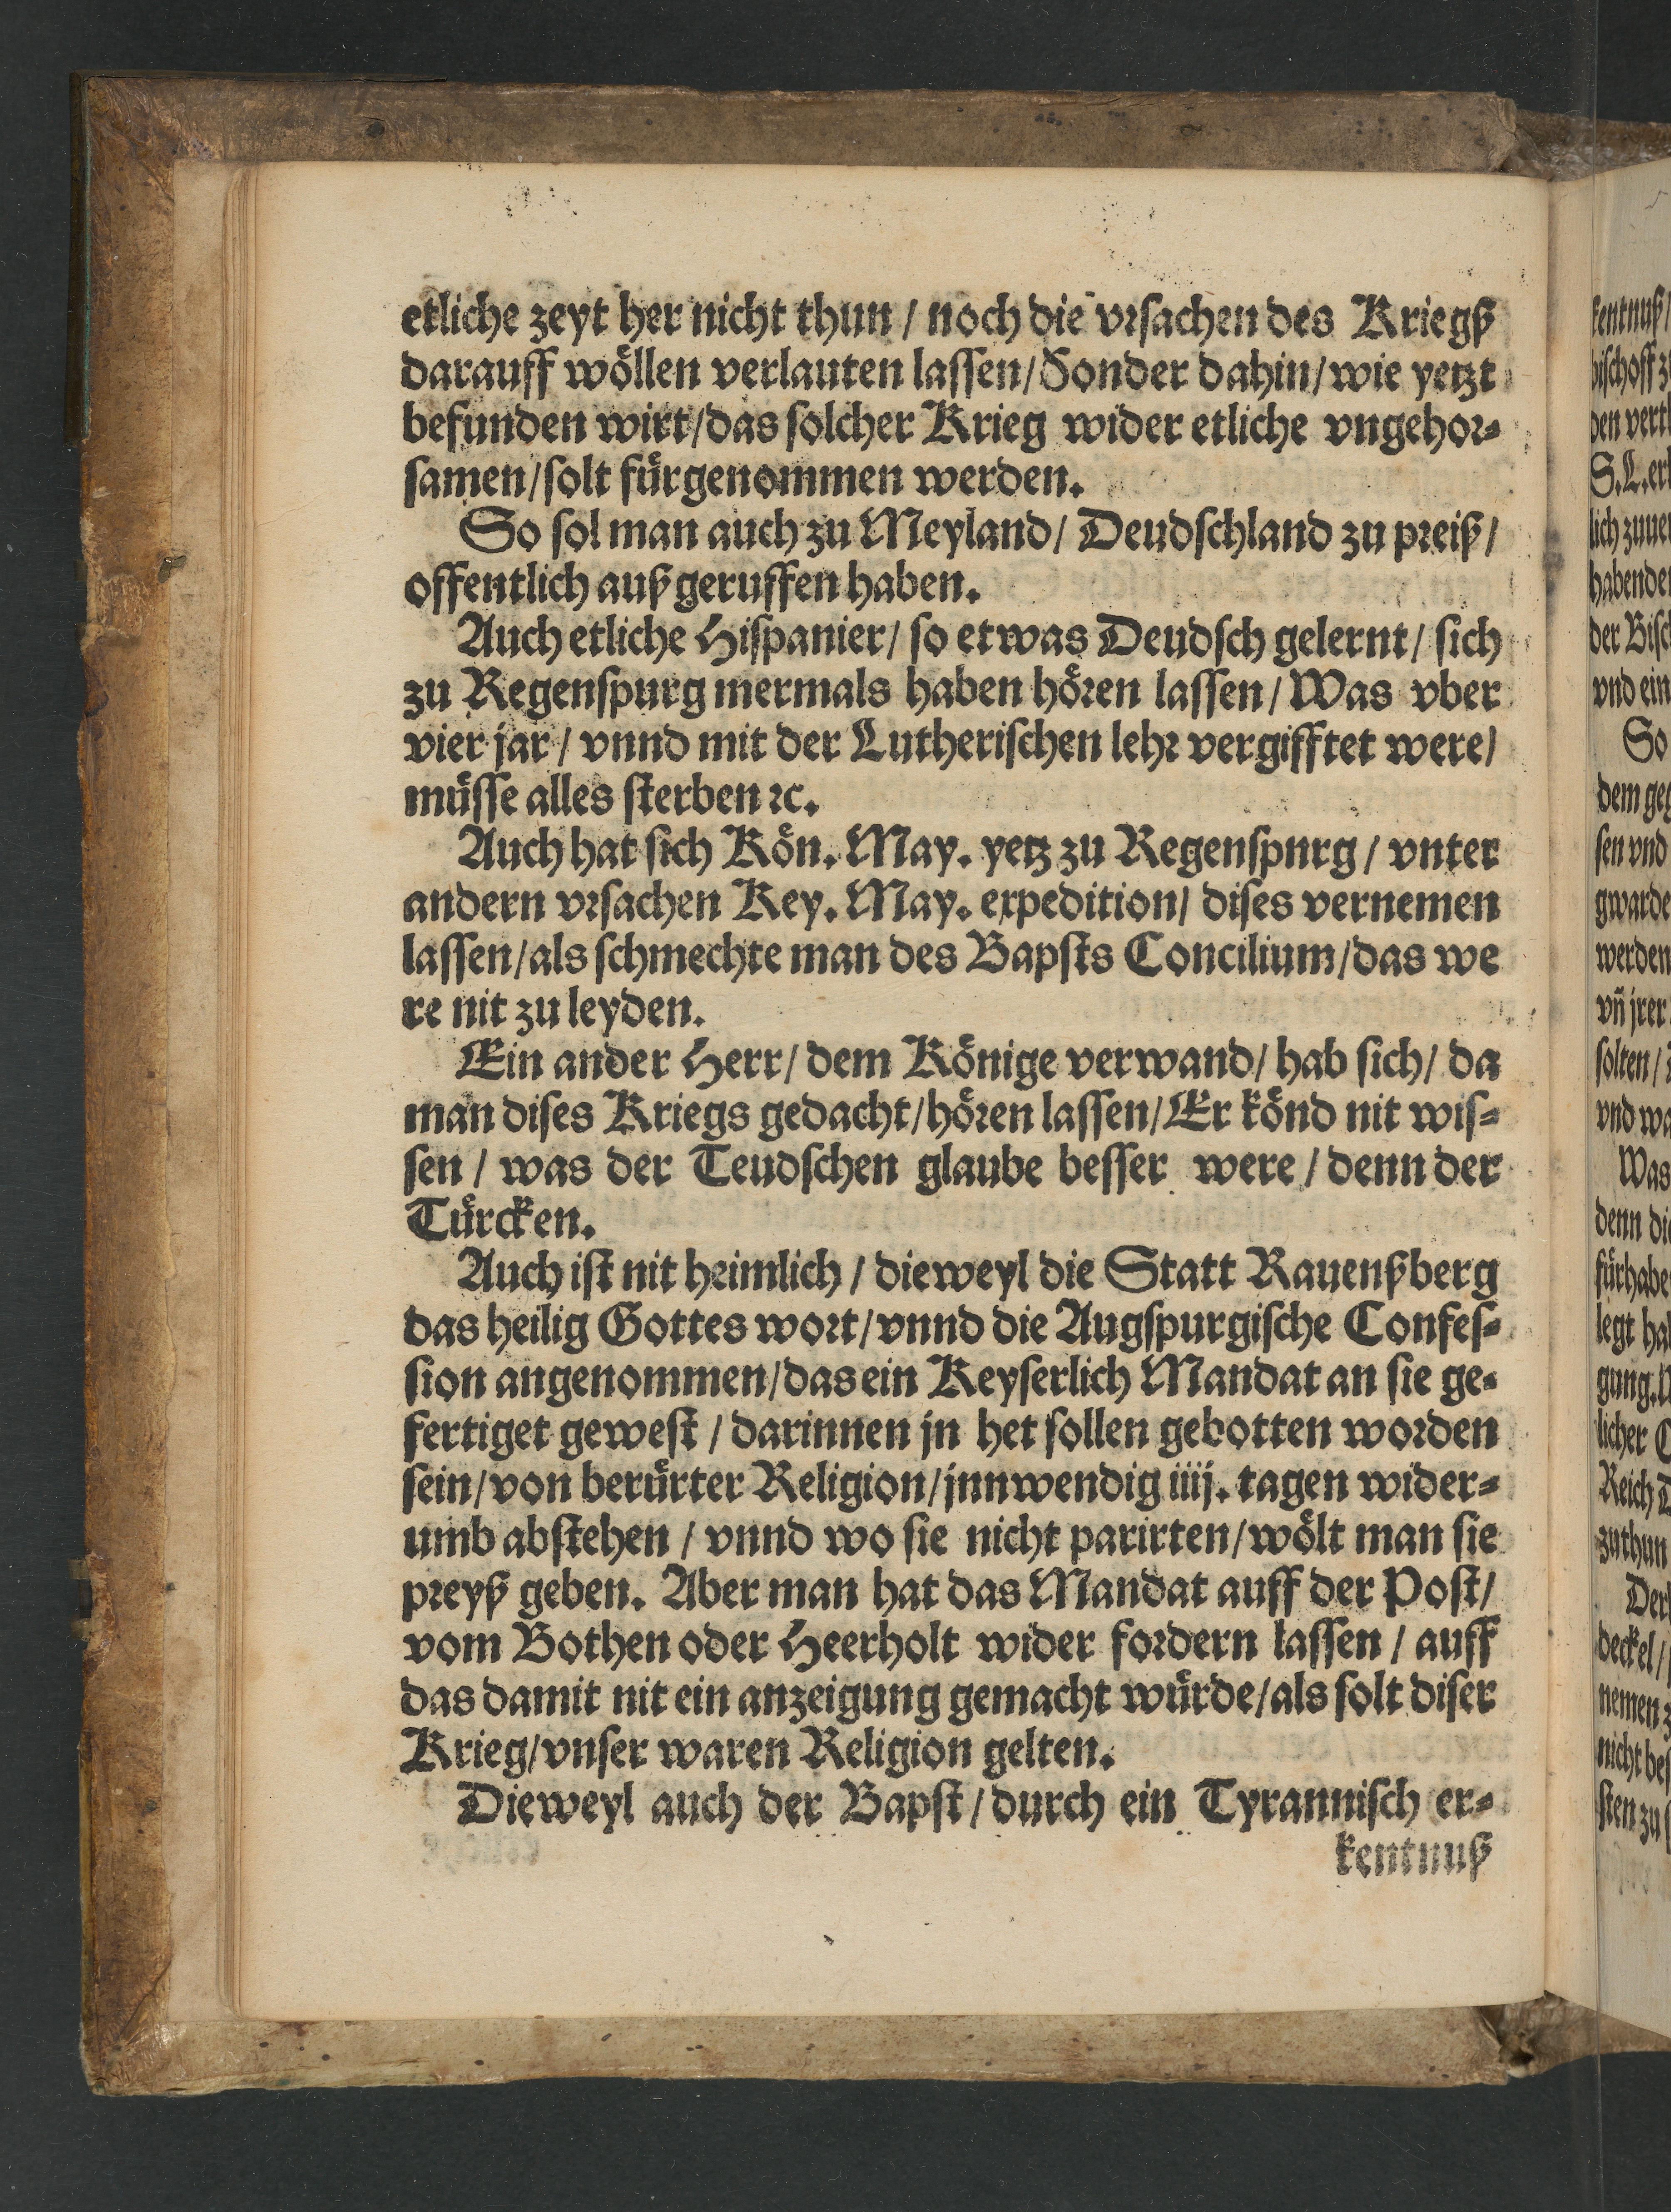 etliche zeyt her nicht thun / noch die vrsachen des Kriegß
darauff wöllen verlauten lassen/Sonder dahin/wie yetzt
befunden wirt/das solcher Krieg wider etliche vngehor-
samen/solt fürgenommen werden.
So sol man auch zu Meyland/ Deudschland zu preiß/
offentlich außgeruffen haben.
Auch etliche Hispanier/ so etwas Deudsch gelernt/ sich
zu Regenspurg mermals haben hören lassen/ Was vber
vier jar / vnnd mit der Lutherischen lehr vergifftet were/
müsse alles sterben ꝛc.
Auch hat sich Kön. May. yetz zu Regenspnrg / vnter
andern vrsachen Key. May. expedition/ dises vernemen
lassen/als schmechte man des Bapsts Concilium/das we
re nit zu leyden.
Ein ander Herr/ dem Könige verwand/ hab sich/ da
man dises Kriegs gedacht/hören lassen/Er könd nit wis-
sen / was der Teudschen glaube besser were / denn der
Türcken.
Auch ist nit heimlich / dieweyl die Statt Rauenßberg
das heilig Gottes wort/vnnd die Augspurgische Confes-
sion angenommen/das ein Keyserlich Mandat an sie ge-
fertiget gewest / darinnen jn het sollen gebotten worden
sein/von berürter Religion/jnnwendig iiij. tagen wider-
umb abstehen / vnnd wo sie nicht parirten/wölt man sie
preyß geben. Aber man hat das Mandat auff der Post/
vom Bothen oder Heerholt wider fordern lassen / auff
das damit nit ein anzeigung gemacht würde/als solt diser
Krieg/vnser waren Religion gelten.
Dieweyl auch der Bapst / durch ein Tyrannisch er-
kentnuß
kentnuß/
bischoff z
den vert
S.L.er
lich zuue
habende
der Bisc
vnd ein
So
dem geg
sen vnd
gwarde
werden
vñ jrer
solten /
vnd wa
Was
denn die
fürhabe
legt hab
gung.
licher C
Reich
zuthun
Der
deckel/
nemen z
nicht bes
sten zu